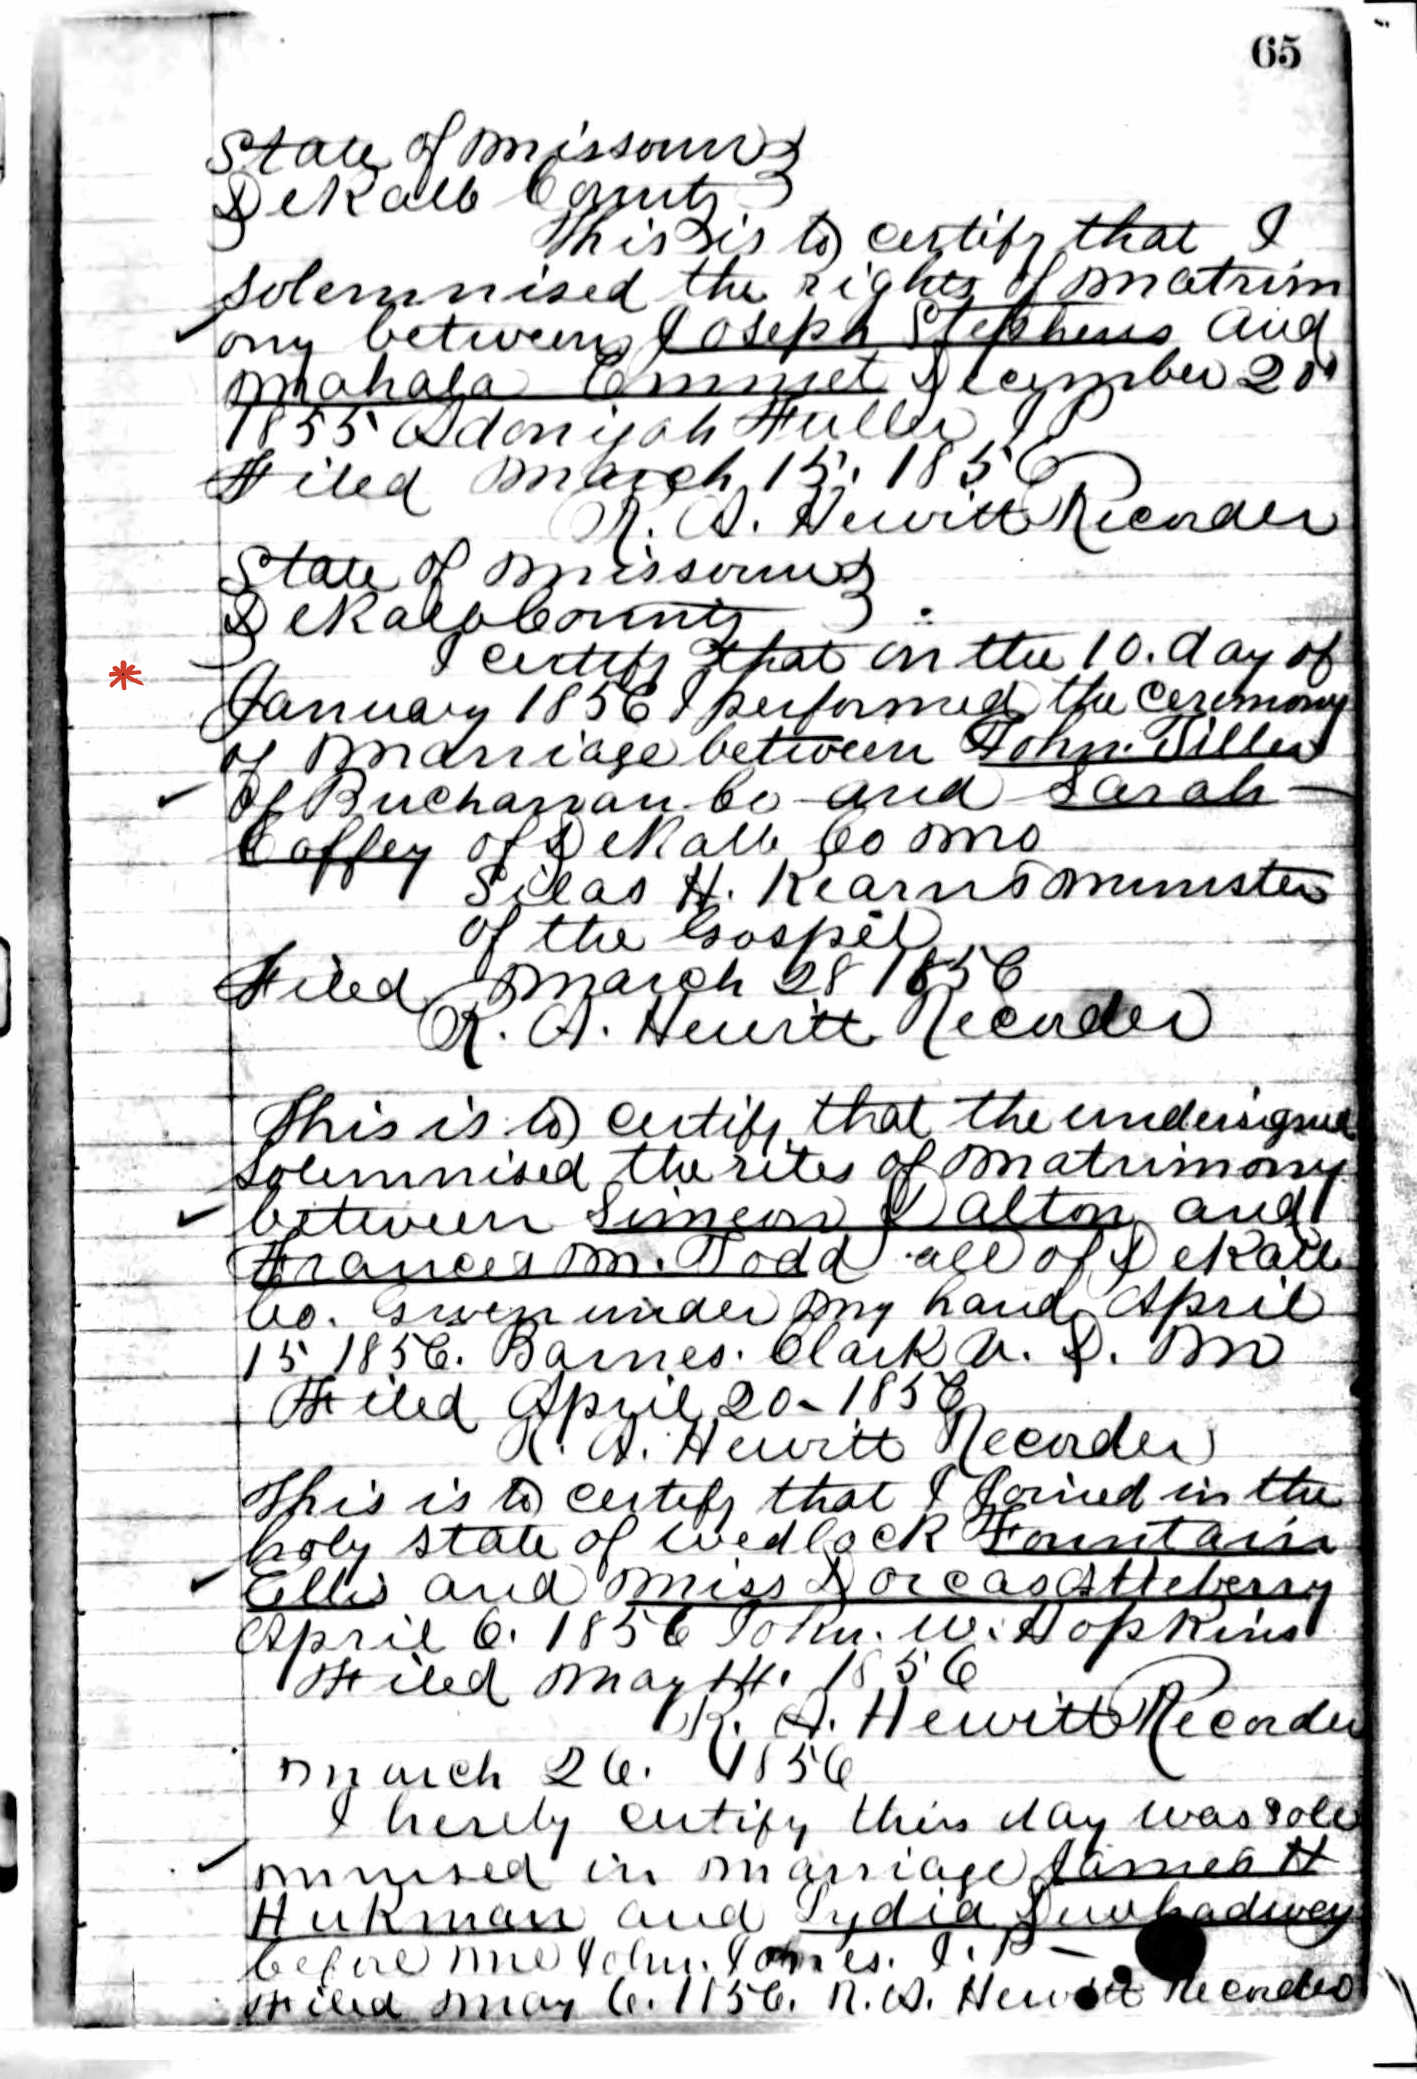 65
State of Missouri
DeKalb County
This is to certify that I
solemnised the rights of matrim
ony between Joseph Stephens and
Mahala Emmet December 20
1855 Adonijah Fuller J P
Filed March 15. 1856
R. A. Hewitt Recorder
State of Missouri
DeKalb County
I certify that on the 10. day of
January 1856 I performed the ceremony
of Marriage between John. Tiller
of Buchanan Co and Sarah
Coffey of DeKalb Co Mo
Silas H. Kearns Minister
of the Gospel
Filed March 28 1856
R. A. Hewitt Recorder
This is to certify that the undersigned
solemnised the rites of matrimony
between Simeon Dalton and
Frances M. Todd all of DeKalb
Co. Given under my hand April
15 1856. Barnes. Clark V. D. M
Filed April 20 1856
R. A. Hewitt Recorder
This is to certify that I Joined in the
holy state of wedlock Fountain
Ellis and Miss Dorcas Atteberry
April 6. 1856 John. W. Hopkins
Filed May 14. 1856
R. A. Hewitt Recorder
March 26. 1856
I hereby certify this day was sole
mnised in marriage James H
Hukman and Lydia
before me John. Jones. J. P
Filed May 6. 1856. R. A. Hewitt Recorder